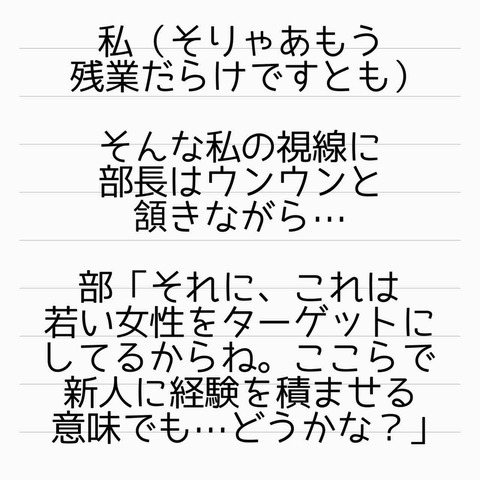 私（そりゃあもう
残業だらけですとも）
そんな私の視線に
部長はウンウンと
頷きながら…
部「それに、これは
若い女性をターゲットに
してるからね。ここらで
新人に経験を積ませる
意味でも…どうかな？」